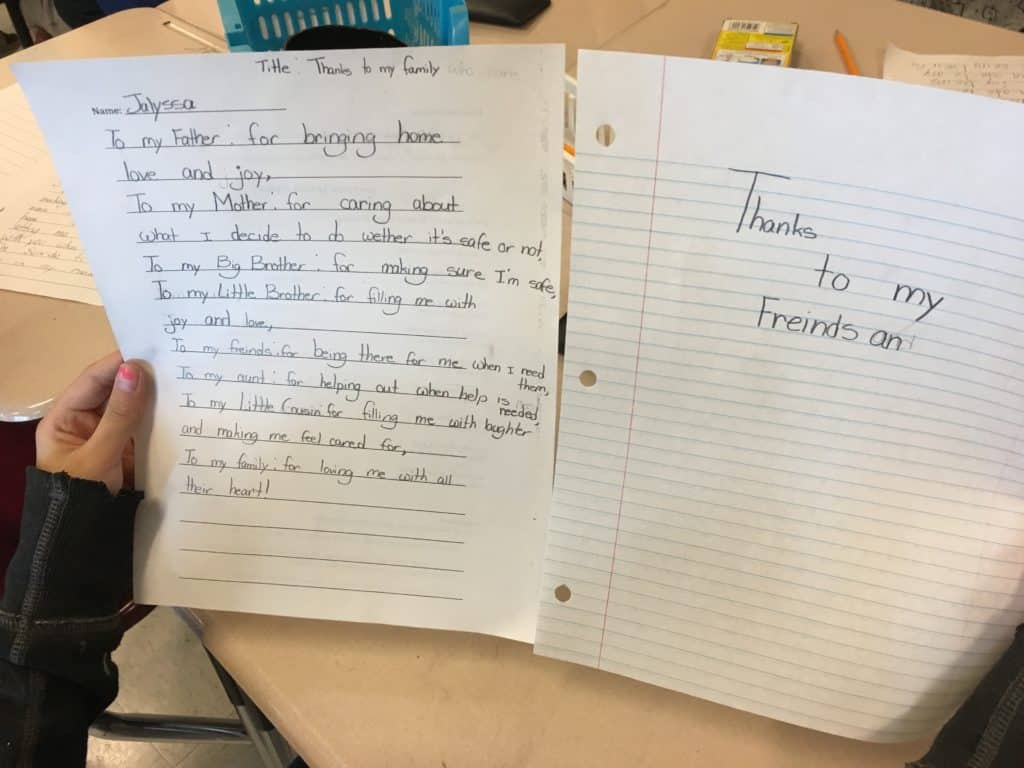 Title: Thanks to my family
Name: Julyssa
To my Father: for bringing home
love and joy,
To my Mother: for caring about
what I decide to do wether it's safe or not,
To my Big Brother: for making sure I'm safe,
To my Little Brother: for filling me with
joy and love,
To my freinds: for being there for me when I need
them,
To my aunt: for helping out when help is
needed,
To my Little Cousin: for filling me with laughter
and making me feel cared for,
To my family: for loving me with all
their heart!
Thanks
to my
Freinds an